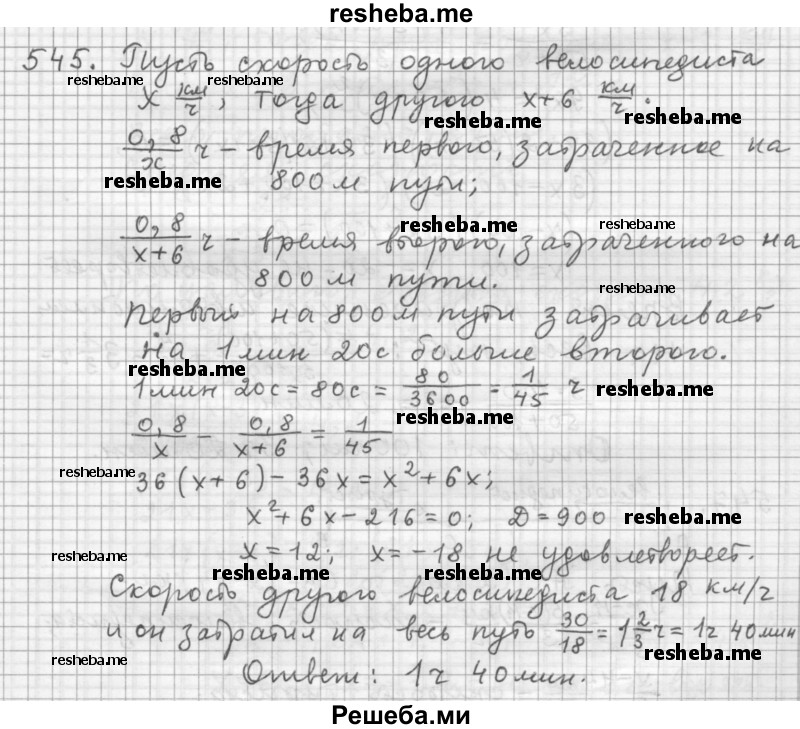 resheba.me
545. Пусть скорость одного велосипедиста
resheba.me resheba.me
x км/ч, тогда другого x+6 км/ч.
resheba.me resheba.me
0,8/x ч – время первого, затраченное на
resheba.me 800 м пути;
0,8/x+6 ч – время второго, затраченного на
resheba.me resheba.me
800 м пути.
resheba.me
Первый на 800 м пути затрачивает
на 1 мин 20с больше второго.
resheba.me
1 мин 20с = 80с = 80/3600 = 1/45 ч resheba.me
0,8/x - 0,8/x+6 = 1/45 resheba.me
resheba.me 36(x+6)-36x=x²+6x;
x²+6x-216=0; D=900 resheba.me
resheba.me x=12; x=-18 не удовлетвореет.
resheba.me resheba.me
Скорость другого велосипедиста 18 км/ч
и он затратил на весь путь 30/18=1 2/3 ч=1ч 40мин
resheba.me resheba.me
Ответ: 1ч 40мин.
Решеба.ми